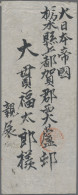 大日本帝國
栃木縣上都賀郡西大蘆邨
大貫福太郎様
親展